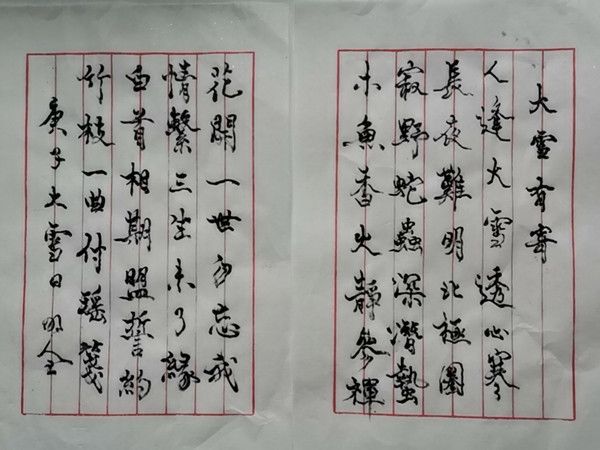 大雪有寄
人逢大雪透心寒
長夜難明北極圈
寂野蛇蟲深潛蟄
木魚香火靜參禪
花開一世勿忘我
情繫三生未了緣
白首相期盟誓約
竹枝一曲付瑤箋
庚子大雪日